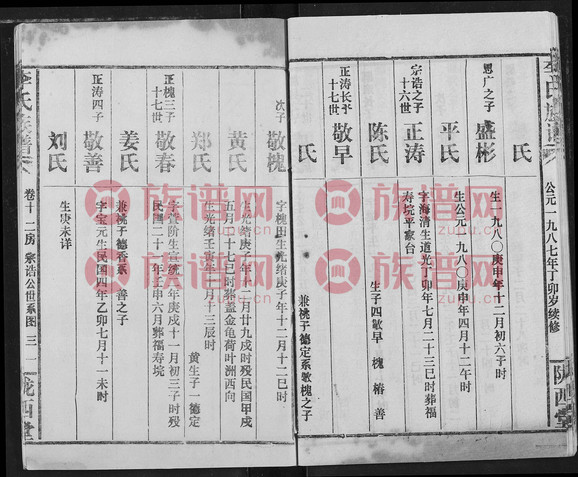 李氏族谱
公元一九八七年丁卯岁续修
陇西堂
氏
恩广之子
盛彬
生一九八〇庚申年十二月初六子时
平氏
生公元一九八〇庚申年四月十二午时
宗诰之子
十六世
正涛
字海清生道光丁卯年七月二十三巳时葬福
寿垸平家台
陈氏
生子四敬早 槐 椿 善
正涛长子
十七世
敬早
氏
兼桃子德定系敬槐之子
次子
敬槐
字槐田生光绪庚子年十二月十二巳时
黄氏
生光绪庚子年十二月廿九戌时殁民国甲戌
五月十七巳时葬盖金龟荷叶洲西向
郑氏
生光绪壬寅年二月十三辰时
黄生子一德定
正槐三子
十七世
敬春
字萱阶生宣统二年庚戌十一月初三子时殁
民国二十一年壬申六月葬福寿垸
姜氏
兼桃子德香系善之子
正涛四子
敬善
字宝元生民国四年乙卯七月十一未时
刘氏
生庚未详
李氏族谱
卷十二房 宗诰公世系图 三一
陇西堂
族谱网
zupu.cn
族谱网
zupu.cn
族谱网
zupu.cn